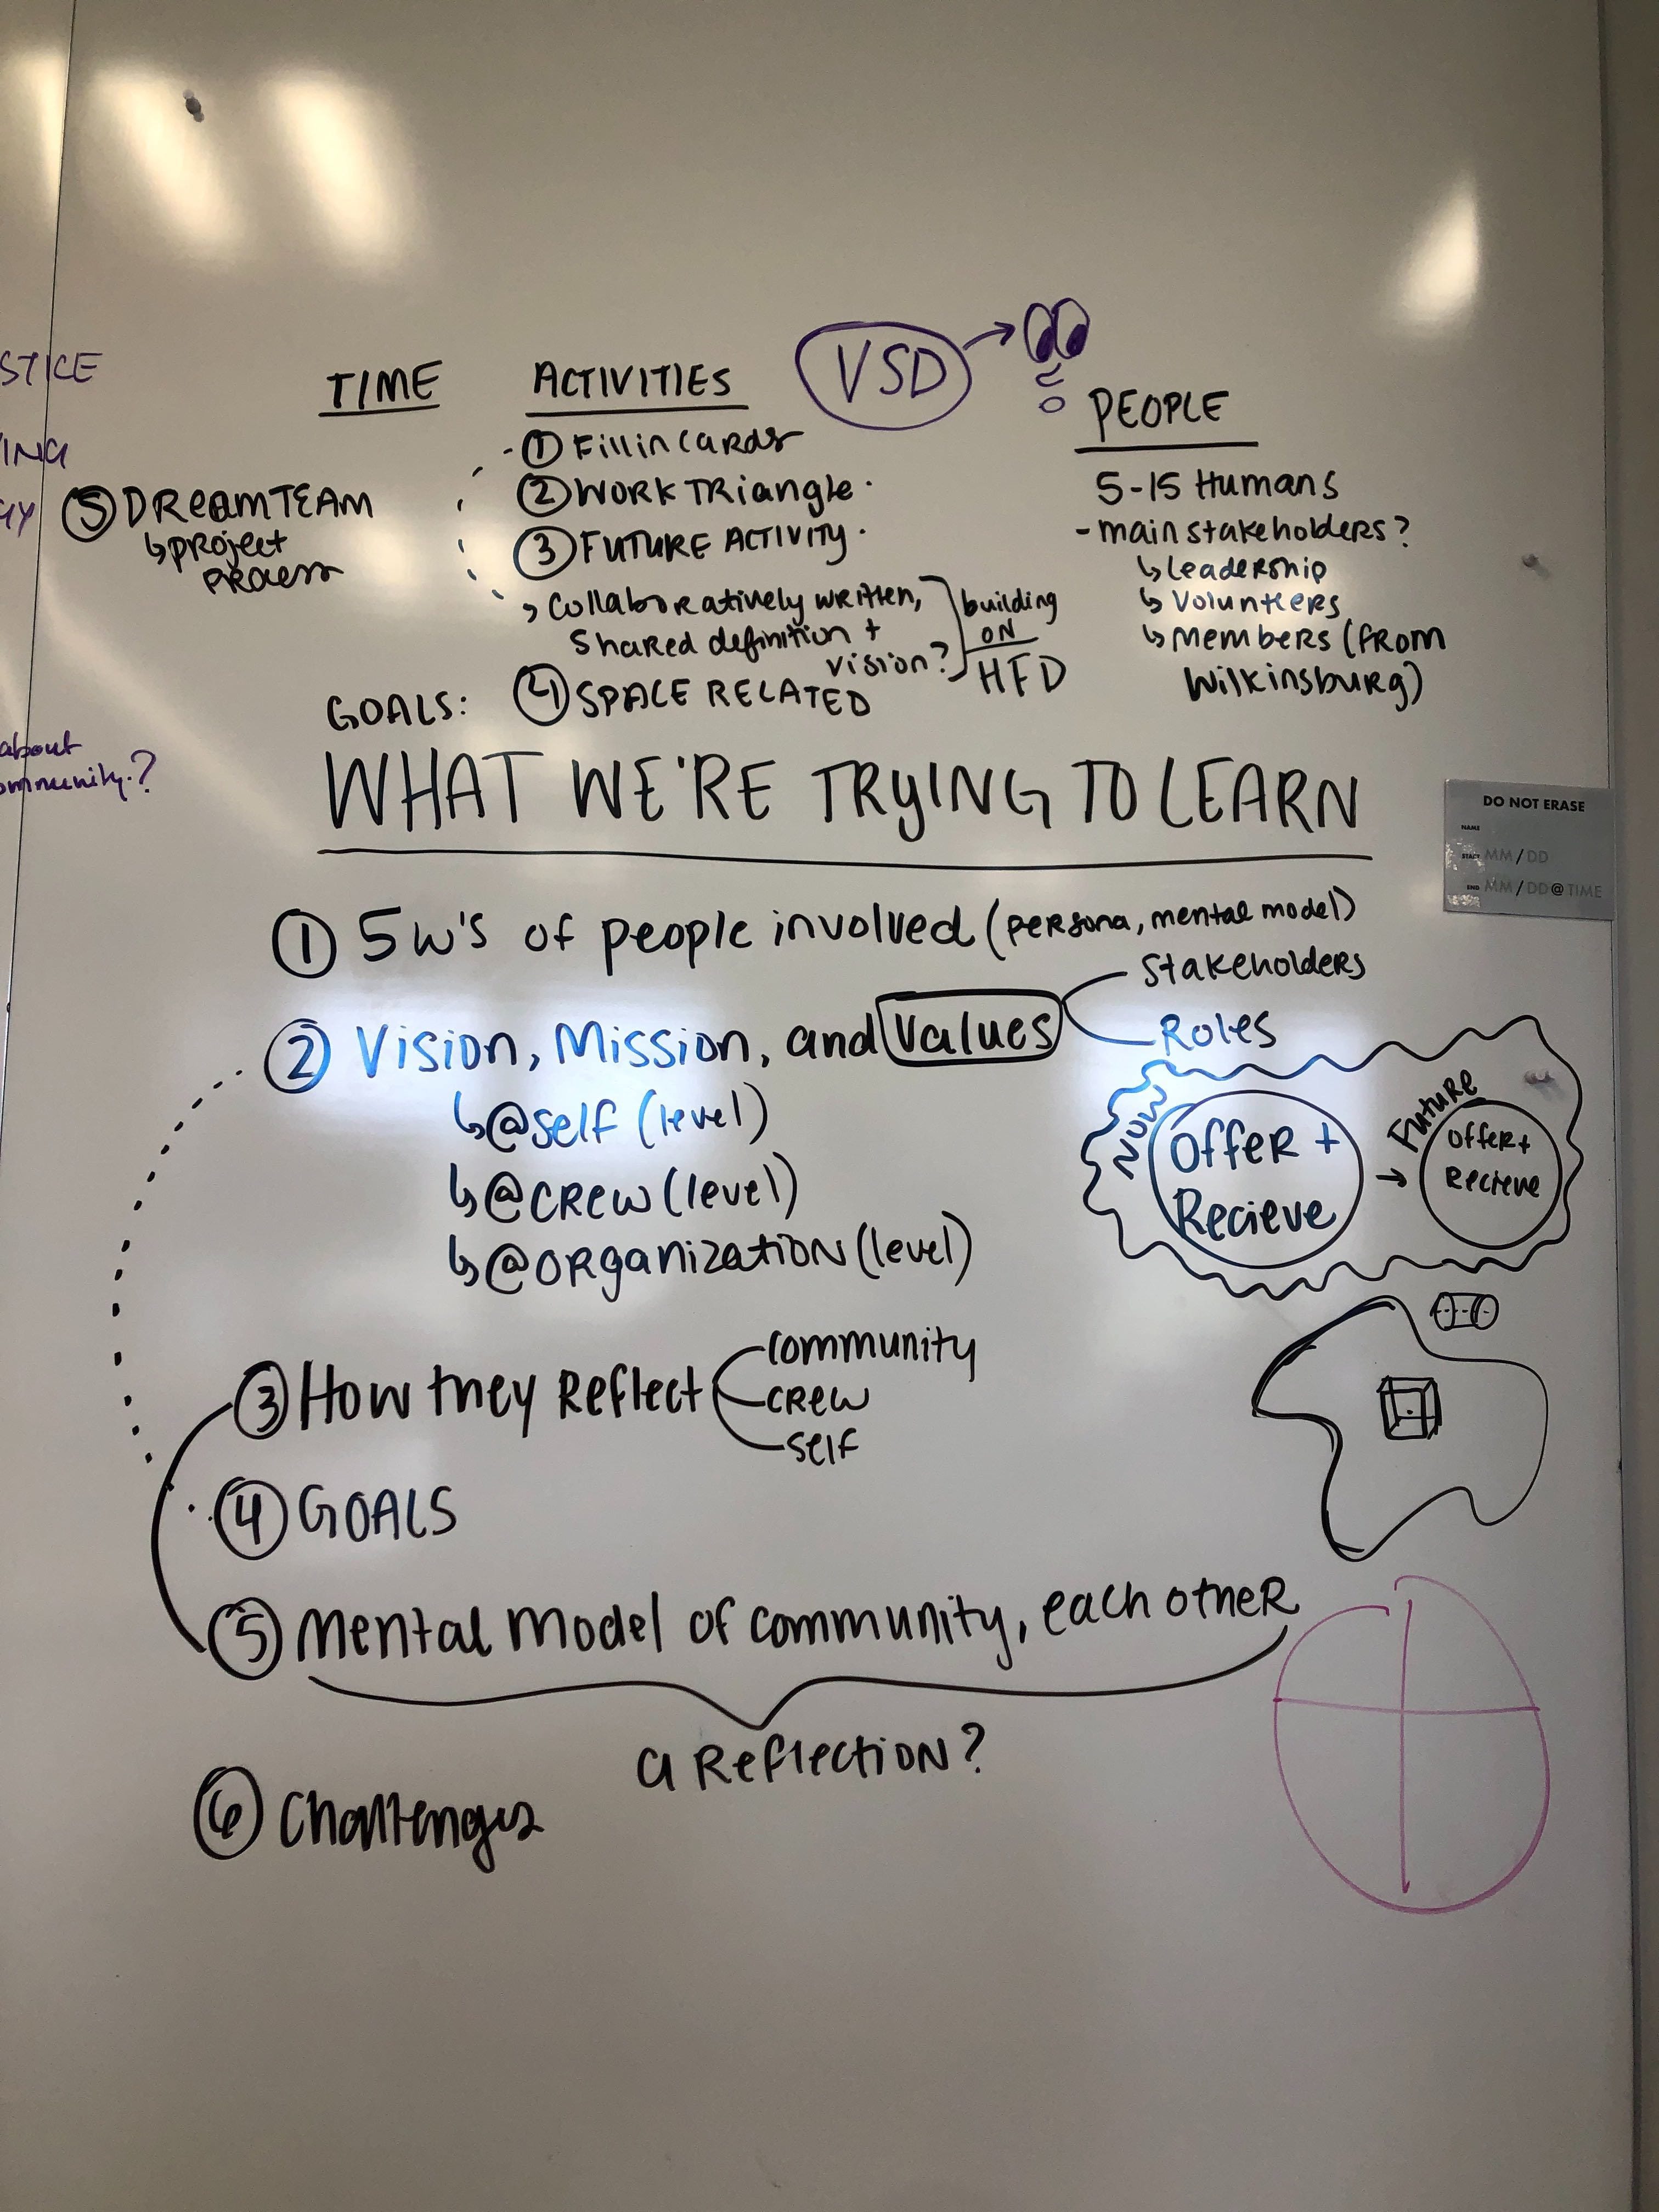 STICE
ING
GY
about
ommunity?
TIME
ACTIVITIES
VSD
PEOPLE
① Fill in cards
② WORK TRIangle
③ FUTURE ACTIVITY
↳ collaboratively written,
shared definition +
vision?
building
ON
HFD
④ SPACE RELATED
⑤ DREAM TEAM
↳ project
process
5-15 Humans
- main stakeholders?
↳ Leadership
↳ Volunteers
↳ Members (from
Wilkinsburg)
GOALS:
WHAT WE'RE TRYING TO LEARN
DO NOT ERASE
NAME
START MM/DD
END MM/DD@TIME
① 5 W's of people involved (persona, mental model)
② Vision, Mission, and Values
Stakeholders
Roles
↳ @self (level)
↳ @CREW (level)
↳ @ORganization (level)
NOW
Offer +
Recieve
→
Future
Offer +
Recieve
③ How they Reflect
community
CREW
self
④ GOALS
⑤ Mental Model of community, each other
a Reflection?
⑥ Challenges